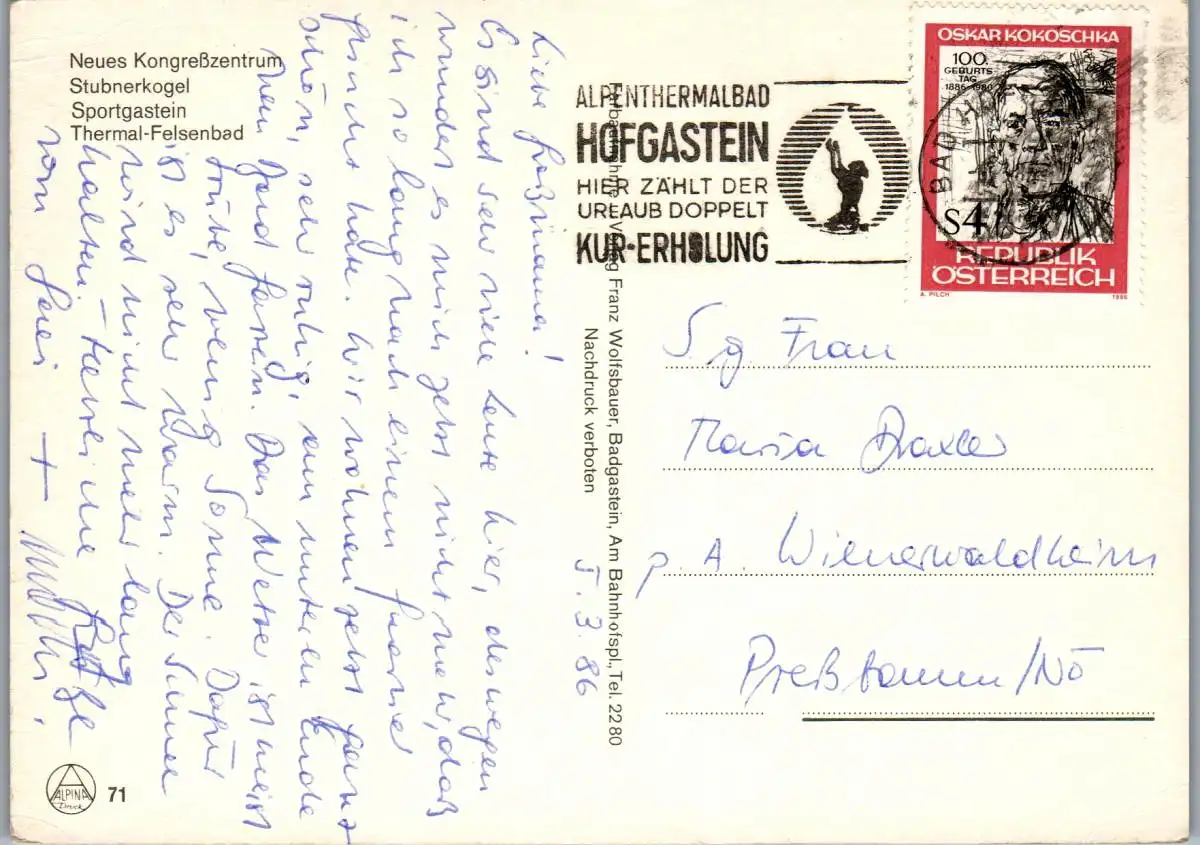 Neues Kongreßzentrum
Stubnerkogel
Sportgastein
Thermal-Felsenbad
ALPENTHERMALBAD
HOFGASTEIN
HIER ZÄHLT DER
URLAUB DOPPELT
KUR-ERHOLUNG
BAD
OSKAR KOKOSCHKA
100.
GEBURTS
TAG
1886-1980
S4
REPUBLIK
ÖSTERREICH
A. PILCH
1986
Verlag Franz Wolfsbauer, Badgastein, Am Bahnhofspl., Tel. 22 80
Nachdruck verboten
5. 3. 86
Liebe Großmama!
Es sind sehr viele Leute hier, deswegen
wundert es mich jetzt nicht mehr, daß
ich so lang nach einem Quartier
gesucht habe. Wir wohnen jetzt ganz
schön, sehr ruhig, am unteren Ende
von Badgastein. Das Wetter ist meist
trübe, wenig Sonne. Dafür
ist es sehr warm. Der Schnee
wird nicht mehr lang
halten. – Herzliche Grüße
von
S. g. Frau
Maria Draxler
p. A. Wienerwaldheim
Preßbaum/NÖ
ALPINA
Druck
71